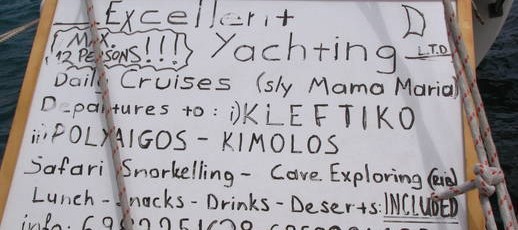 Excellent
MAX. 12 PERSONS!!!
Yachting L.T.D
Daily Cruises (s/y Mama Maria)
Departures to: i) KLEFTIKO
ii) POLYAIGOS - KIMOLOS
Safari Snorkelling - Cave Exploring
Lunch - Snacks - Drinks - Deserts: INCLUDED
info: